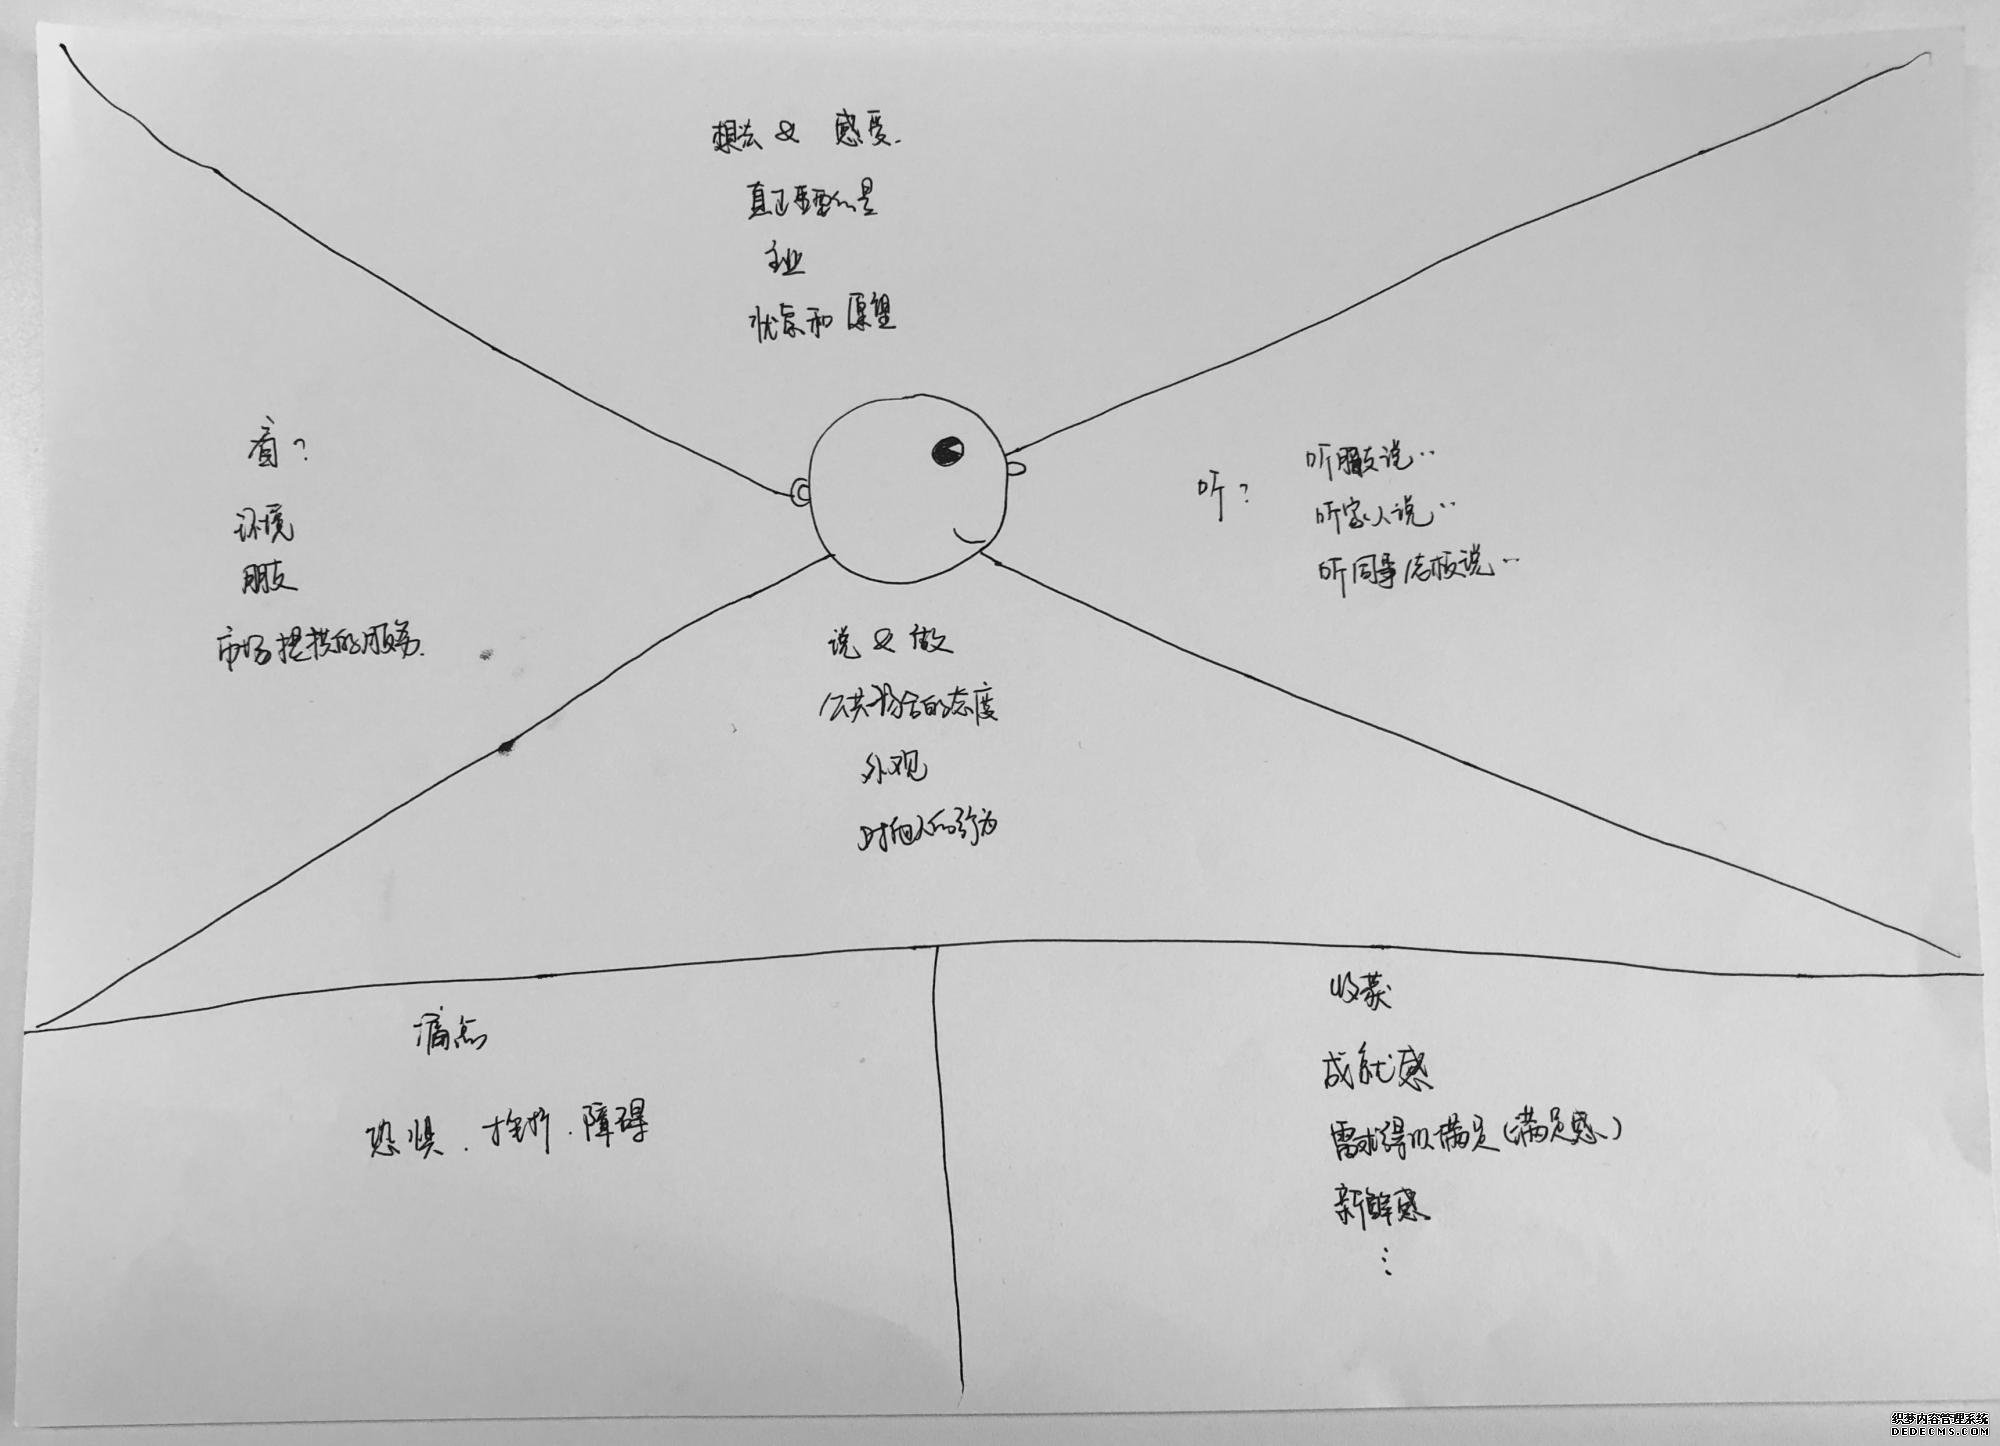 想法 & 感受.
真正重要的是
主业
忧虑和愿望
看?
环境
朋友
市场提供的服务.
听?
听朋友说…
听家人说…
听同事/老板说…
说 & 做
公共场合的态度
外观
对他人的行为
痛点
恐惧.挫折.障碍
收获
成就感
需求得以满足(满足感)
新鲜感
⋮
织梦内容管理系统
DEDECMS.COM